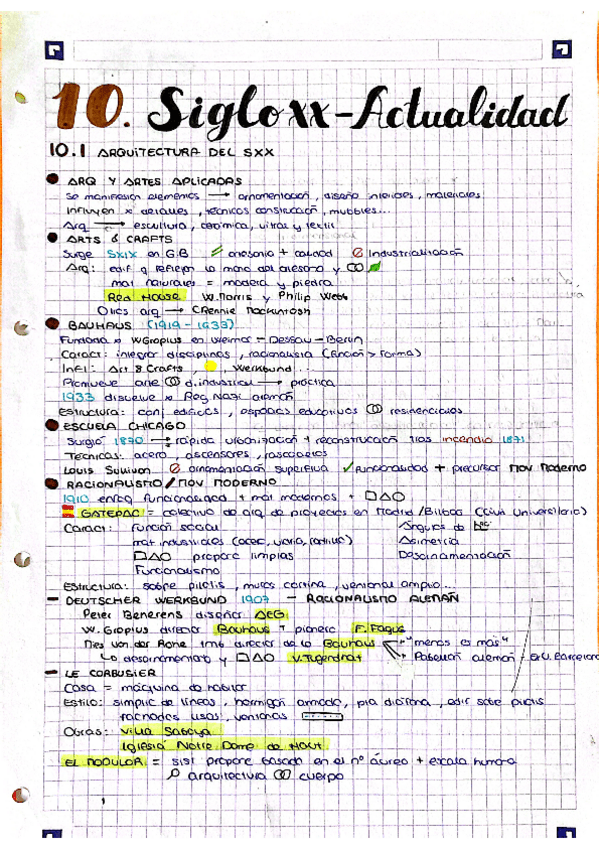 10. Siglo XX - Actualidad
10.1 ARQUITECTURA DEL SXX
ARQ Y ARTES APLICADAS
Se manifiestan elementos → ornamentación, diseño interiores, materiales
Influyen x detalles, técnicas construcción, muebles...
Arq → escultura, cerámica, vitral y textil
ARTS & CRAFTS
Surge SXIX en GB artesanía + calidad Industrialización
Arq: edif q reflejen la mano del artesano y
mat naturales = madera y piedra
Red House W. Morris y Philip Webb
Otros arq → C Rennie Mackintosh
BAUHAUS (1919-1933)
Funciona x W Gropius en Weimar - Dessau - Berlin
Caract: integrar disciplinas, racionalista (función > forma)
Infl: Art & Crafts, , Werkbund...
Promueve arte d. industrial → práctica
1933 disuelve x Reg Nazi alemán
Estructura: conj edificios, espacios educativos residenciales
ESCUELA CHICAGO
Surgió 1870 → rápida urbanización + reconstrucción tras incendio 1871
Técnicas: acero, ascensores, rascacielos
Louis Sullivan ornamentación superflua ✓ funcionalidad + precursor Mov Moderno
RACIONALISMO / MOV MODERNO
1910 enfoq funcionalidad + mat modernos + □△○
GATEPAC = colectivo de arq de proyectos en Madrid / Bilbao (Ciud Universitario)
Caract: función social
mat industriales (acero, vidrio,
□△○ proporc limpias
Funcionalismo
Ángulos de
Asimetría
Desornamentación
Estructura: sobre pilotis, muros cortina, ventanal amplio...
- DEUTSCHER WERKBUND 1907 - RACIONALISMO ALEMÁN
Peter Beherens diseñar AEG
W. Gropius director Bauhaus + pionero F. Fagus
Mies van der Rohe último director de la Bauhaus "menos es más"
↳ desornamentado y □△○ V. Tugendhat Pabellón alemán / Ex U. Barcelona
- LE CORBUSIER
Casa = máquina de habitar
Estilo: simplic de líneas, hormigón armado, pta diáfana, edif sobre pilotis
fachadas lisas, ventanas
Obras: Villa Saboya
Iglesia Notre Dame de Haut
EL MODULOR = sist proporc basado en el nº áureo + escala humana
arquitectura cuerpo
1